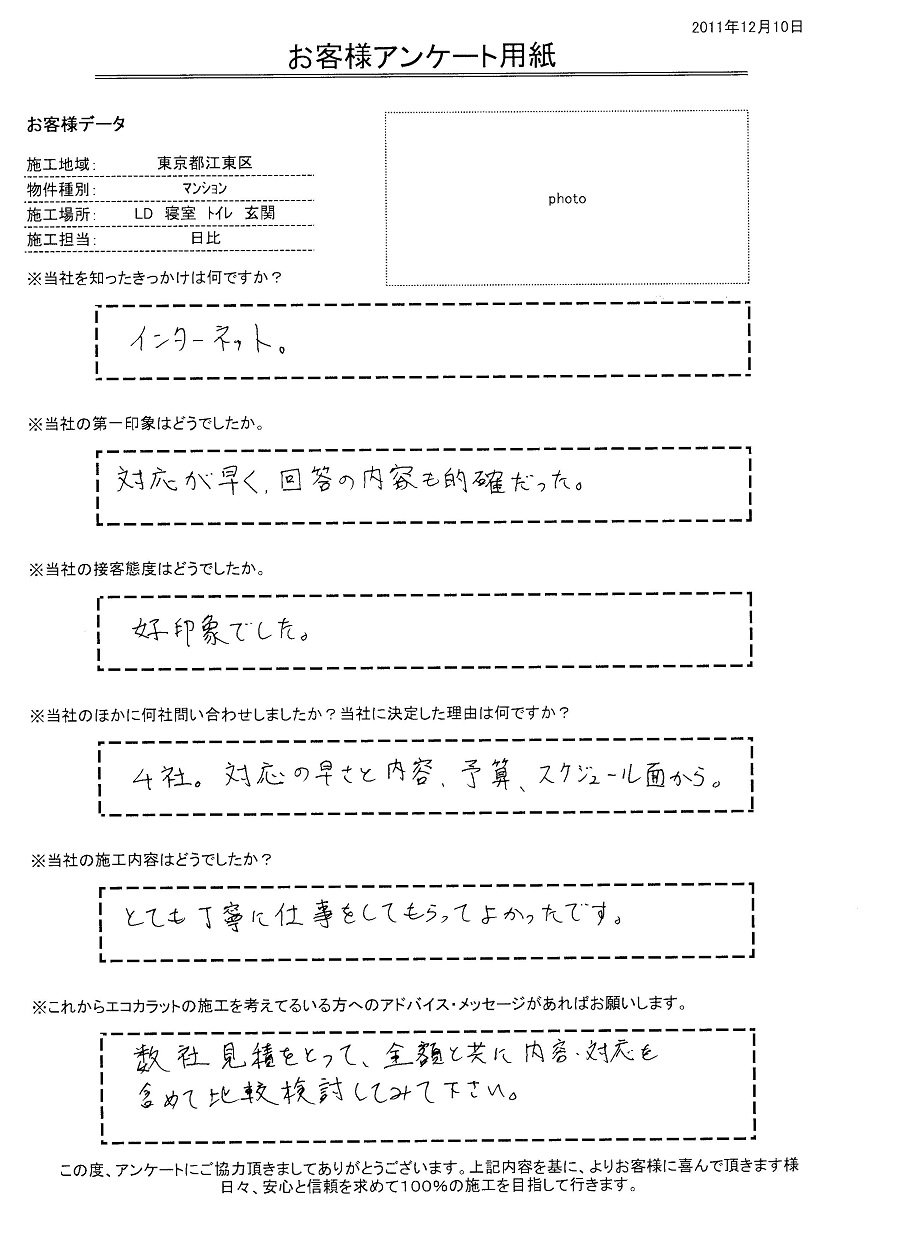 2011年12月10日
お客様アンケート用紙
お客様データ
施工地域: 東京都江東区
物件種別: ﾏﾝｼｮﾝ
施工場所: LD 寝室 ﾄｲﾚ 玄関
施工担当: 日比
photo
※当社を知ったきっかけは何ですか？
インターネット。
※当社の第一印象はどうでしたか。
対応が早く、回答の内容も的確だった。
※当社の接客態度はどうでしたか。
好印象でした。
※当社のほかに何社問い合わせしましたか？当社に決定した理由は何ですか？
4社。対応の早さと内容、予算、スケジュール面から。
※当社の施工内容はどうでしたか？
とても丁寧に仕事をしてもらってよかったです。
※これからエコカラットの施工を考えてるいる方へのアドバイス・メッセージがあればお願いします。
数社見積をとって、金額と共に内容・対応も
含めて比較検討してみて下さい。
この度、アンケートにご協力頂きましてありがとうございます。上記内容を基に、よりお客様に喜んで頂きます様
日々、安心と信頼を求めて100%の施工を目指して行きます。